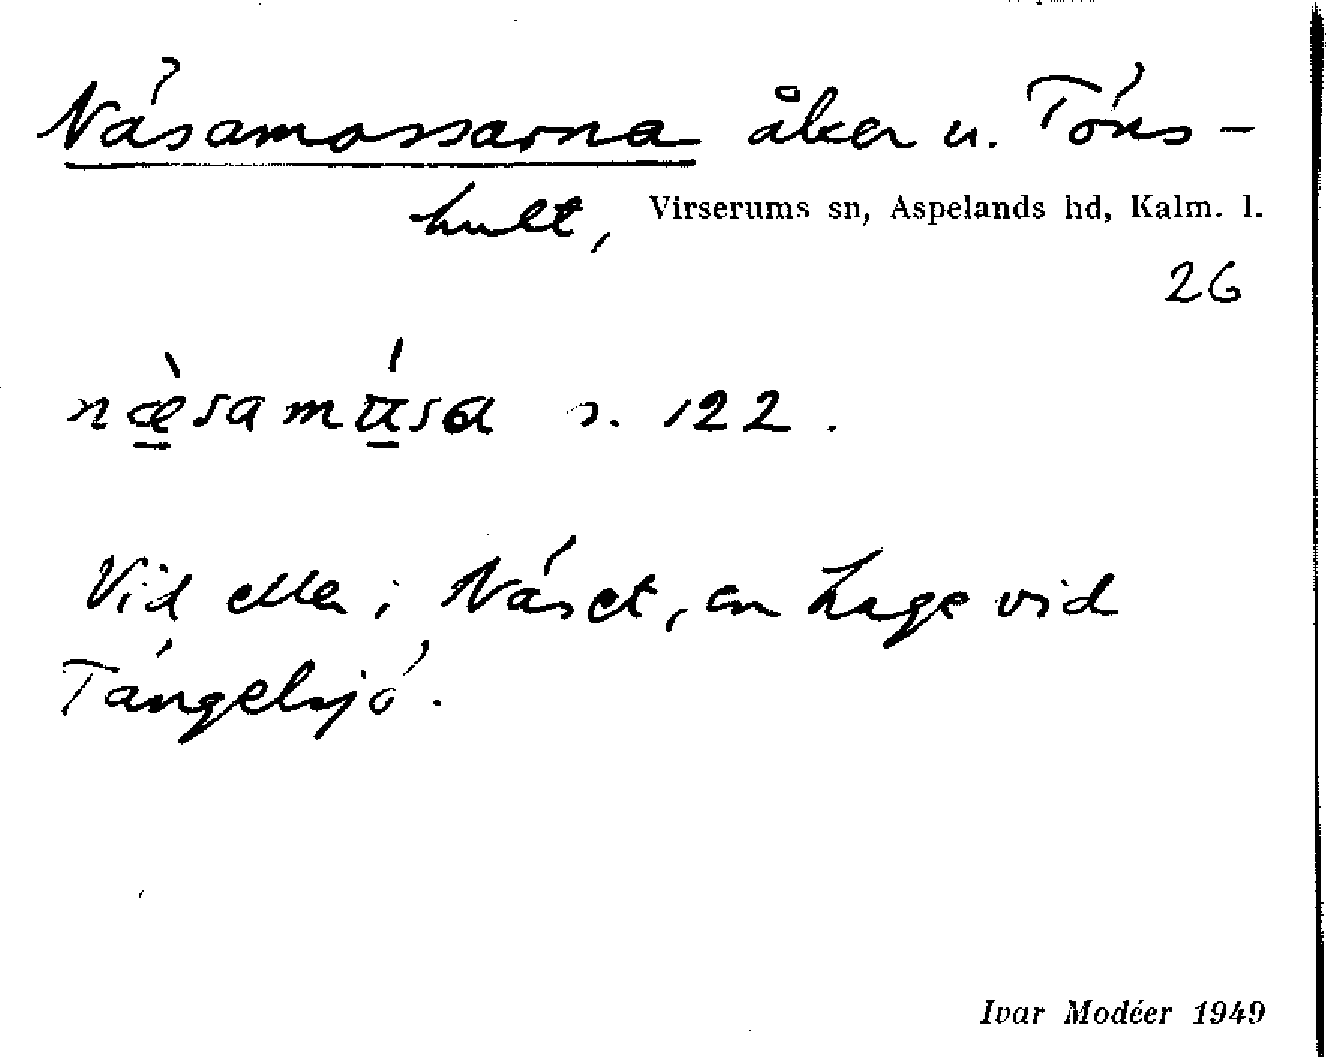 Näsamossarna åker u. Töns-
hult, Virserums sn, Aspelands hd, Kalm. l.
26
næ̠̀samɷ̠́sa s. 122.
Vid eller i Näset, en Lage vid
Tängelsjö.
Ivar Modéer 1949